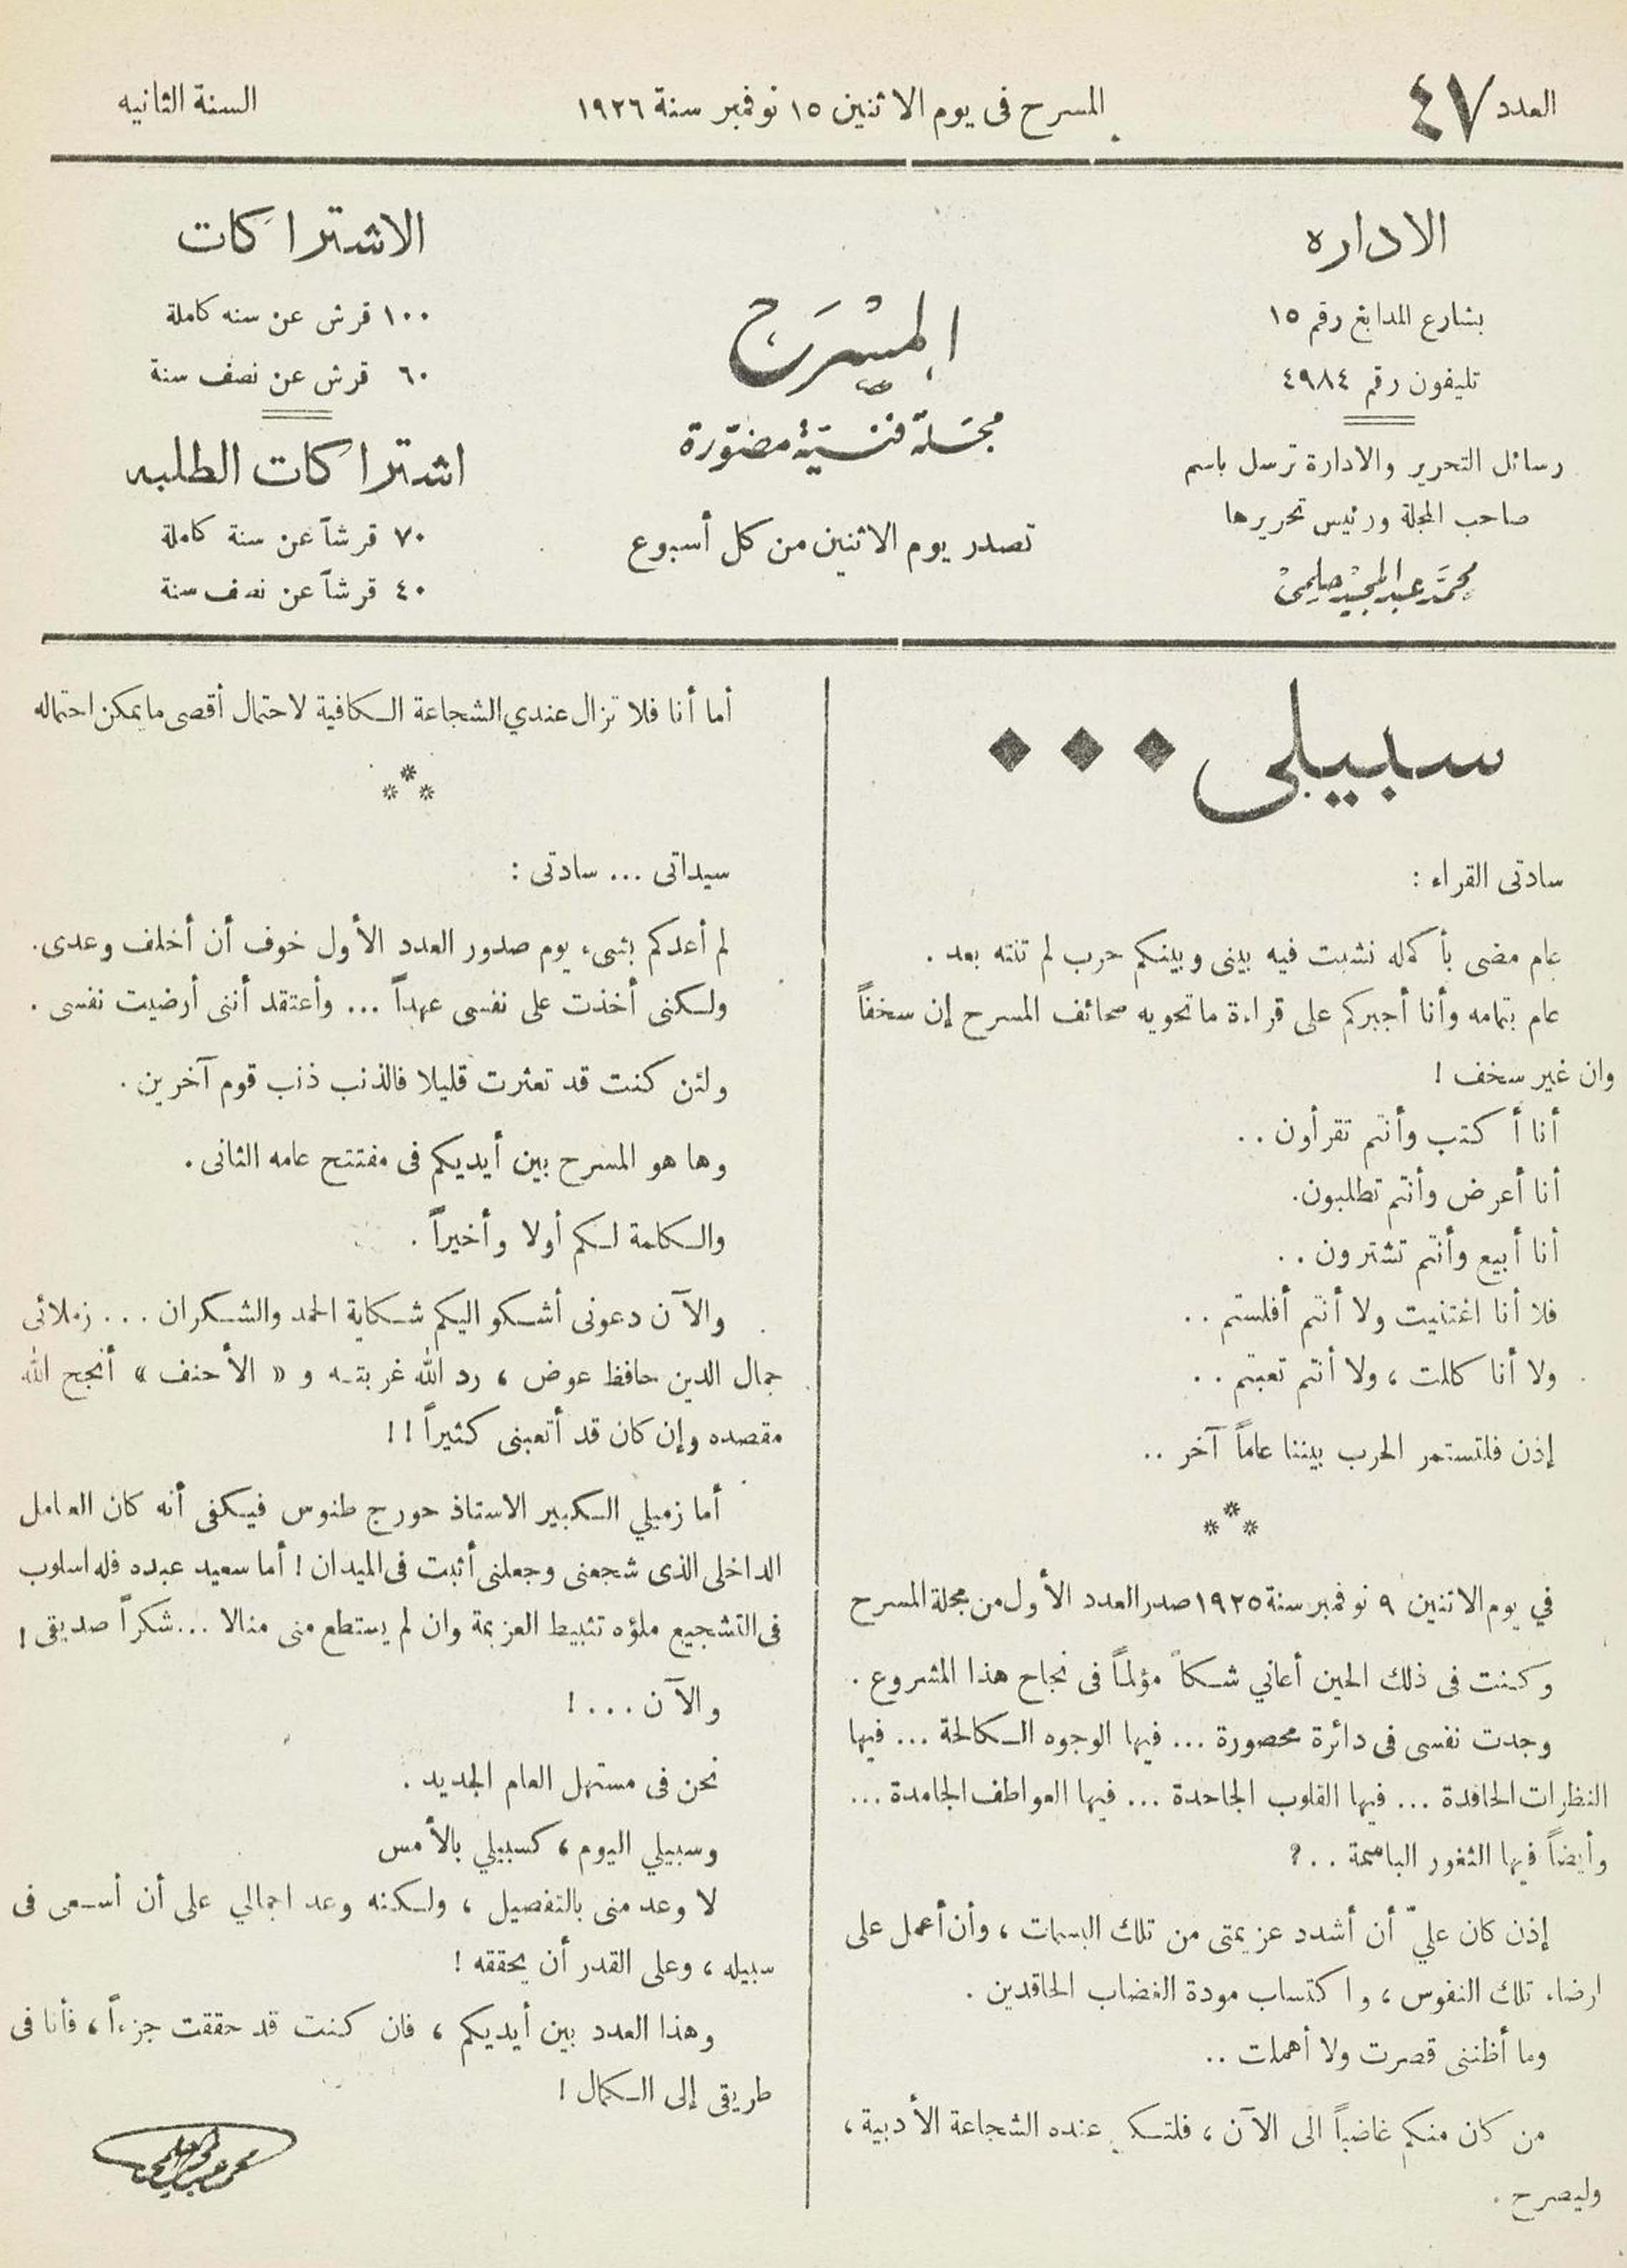 العدد ٤٧
المسرح فى يوم الاثنين ١٥ نوفمبر سنة ١٩٢٦
السنة الثانيه
الاداره
بشارع المدابغ رقم ١٥
تليفون رقم ٤٩٨٤
رسائل التحرير والادارة ترسل باسم
صاحب المجلة ورئيس تحريرها
محمد عبد المجيد حلمى
المسرح
مجلة فنية مصورة
تصدر يوم الاثنين من كل أسبوع
الاشتراكات
١٠٠ قرش عن سنه كاملة
٦٠ قرش عن نصف سنة
اشتراكات الطلبه
٧٠ قرشاً عن سنة كاملة
٤٠ قرشاً عن نصف سنة
سبيلى ...
سادتى القراء :
عام مضى بأكمله نشبت فيه بينى وبينكم حرب لم تنته بعد .
عام بتمامه وأنا أجبركم على قراءة ماتحويه صحائف المسرح إن سخفاً
وان غير سخف !
أنا أكتب وأنتم تقرأون ..
أنا أعرض وأنتم تطلبون.
أنا أبيع وأنتم تشترون ..
فلا أنا اغتنيت ولا أنتم أفلستم ..
ولا أنا كللت ، ولا أنتم تعبتم ..
إذن فلتستمر الحرب بيننا عاماً آخر ..
***
في يوم الاثنين ٩ نوفمبر سنة ١٩٢٥ صدر العدد الأول من مجلة المسرح
وكنت فى ذلك الحين أعاني شكاً مؤلماً فى نجاح هذا المشروع .
وجدت نفسى فى دائرة محصورة ... فيها الوجوه الكالحة ... فيها
النظرات الحاقدة ... فيها القلوب الجاحدة ... فيها العواطف الجامدة ...
وأيضاً فيها الثغور الباسمة ..؟
إذن كان عليّ أن أشدد عزيمتى من تلك البسمات ، وأن أعمل على
ارضاء تلك النفوس ، واكتساب مودة الغضاب الحاقدين .
وما أظننى قصرت ولا أهملت ..
من كان منكم غاضباً الى الآن ، فلتكن عنده الشجاعة الأدبية ،
وليصرح .
أما أنا فلا تزال عندي الشجاعة الكافية لاحتمال أقصى مايمكن احتماله
***
سيداتى ... سادتى :
لم أعدكم بشىء يوم صدور العدد الأول خوف أن أخلف وعدى.
ولكنى أخذت على نفسى عهداً ... وأعتقد أننى أرضيت نفسى .
ولئن كنت قد تعثرت قليلا فالذنب ذنب قوم آخرين .
وها هو المسرح بين أيديكم فى مفتتح عامه الثانى .
والكلمة لكم أولا وأخيراً .
والآن دعونى أشكو اليكم شكاية الحمد والشكران ... زملائى
جمال الدين حافظ عوض ، رد الله غربته و « الأحنف » أنجح الله
مقصده وإن كان قد أتعبنى كثيراً !!
أما زميلي الكبير الاستاذ حورج طنوس فيكفى أنه كان العامل
الداخلى الذى شجعنى وجعلنى أثبت فى الميدان ! أما سعيد عبده فله اسلوب
فى التشجيع ملؤه تثبيط العزيمة وان لم يستطع منى منالا ... شكراً صديقى !
والآن ... !
نحن فى مستهل العام الجديد .
وسبيلي اليوم ، كسبيلي بالأمس
لا وعد منى بالتفصيل ، ولكنه وعد اجمالي على أن أسعى فى
سبيله ، وعلى القدر أن يحققه !
وهذا العدد بين أيديكم ، فان كنت قد حققت جزءاً ، فأنا فى
طريقى إلى الكمال !
محمد عبد المجيد حلمى